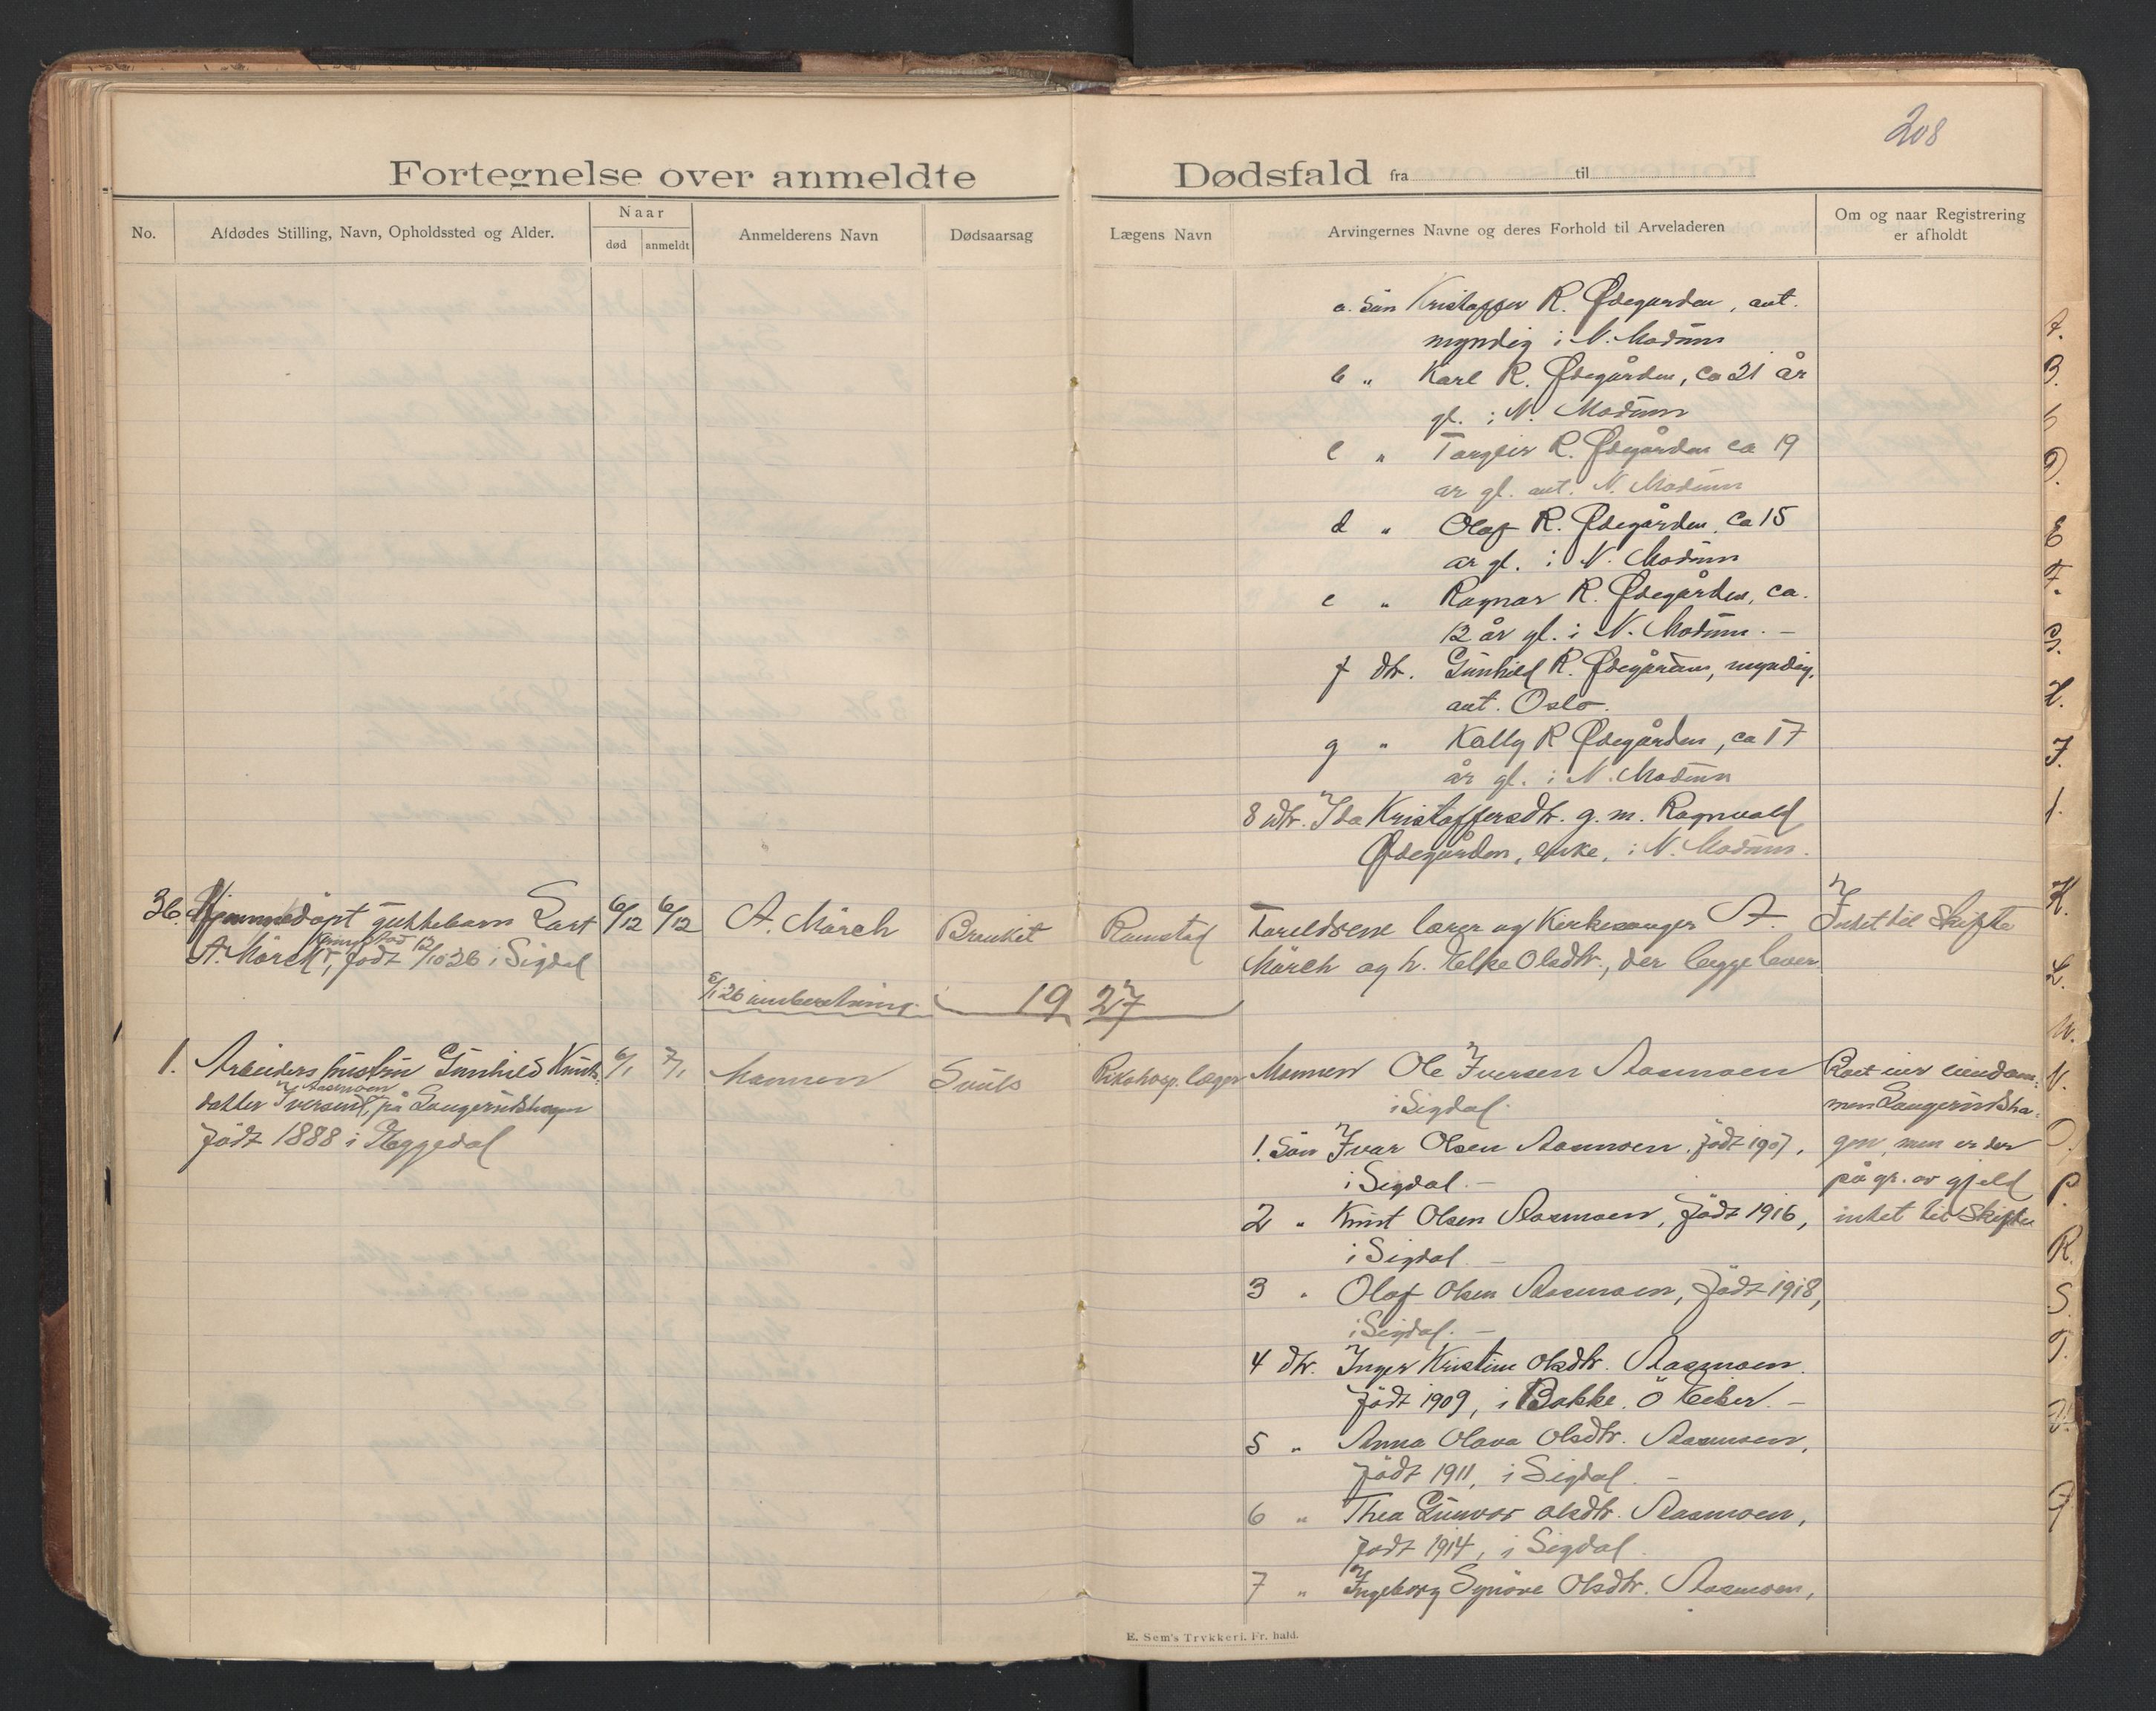 208
Fortegnelse over anmeldte Dødsfald fra til
No.
Afdødes Stilling, Navn, Opholdssted og Alder.
Naar
død anmeldt
Anmelderens Navn
Dødsaarsag
Lægens Navn
Arvingernes Navne og deres Forhold til Arveladeren
Om og naar Registrering
er afholdt
a. Sön Kristoffer R. Ødegarden, ant.
myndig i N. Modum
b " Karl R. Ødegården, ca 21 år
gl. i N. Modum
c " Torgeir R. Ødegården ca 19
ar gl. ant. N. Modum
d " Olaf R. Ødegården, ca 15
ar gl. i N. Modum
e " Ragnar R. Ødegården, ca.
12 år gl. i N. Modum. -
f dtr. Gunhild R. Ødegården, myndig,
ant. Oslo.
g " Kally R Ødegården, ca 17
år gl. i N. Modum
8 dtr. Ida Kristoffersdtr. g. m. Ragnvald
Ødegården, enke, i N. Modum.
36. Hjemmedöpt guttebarn
A. Mörch, födt 12/10 26 i Sigdal
6/12 6/12
A. Mörch
Ramstad
Foreldrene lærer og Kirkesanger A.
Mörch og h. Olsdtr., der begge lever.
Intet til Skifte
5/1 26 innberetning.
1927
1. Arbeiders hustru Gunhild Knuts-
datter Iversen Aasmoen, på Laugerudshagen
födt 1888 i Eggedal
6/1 7/1
Mannen
Rikshosp. læger
Mannen Ole Iversen Aasmoen
i Sigdal.
1. Sön Ivar Olsen Aasmoen, födt 1907,
i Sigdal. -
2 " Knut Olsen Aasmoen, födt 1916,
i Sigdal. -
3 " Olaf Olsen Aasmoen, födt 1918,
i Sigdal. -
4 dtr. Inger Kristine Olsdtr. Aasmoen.
födt 1909, i Bakke. Ö Eiker. -
5 " Anna Olava Olsdtr. Aasmoen,
födt 1911, i Sigdal. -
6 " Thea Gunvor Olsdtr. Aasmoen,
födt 1914, i Sigdal.
7 " Ingeborg Synöve Olsdtr. Aasmoen,
Boet eier eiendom-
men Laugerudsha-
gen, men er der
på gr. av gjeld
intet til Skifte
E. Sem's Trykkeri. Fr. hald.